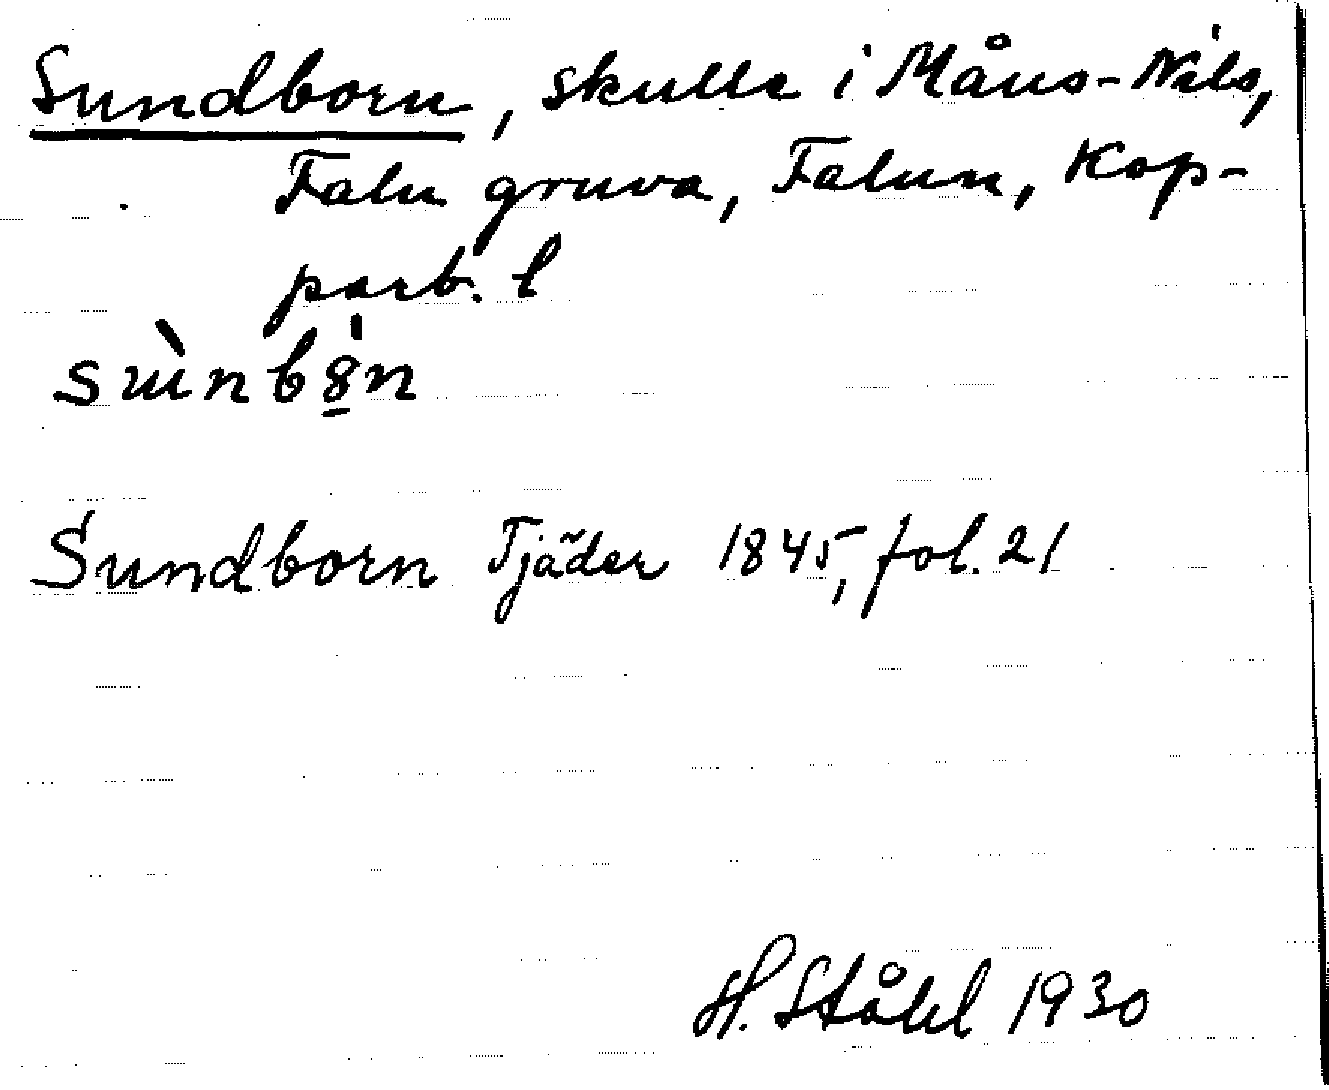 Sundborn, skulle i Måns-Nils,
Falu gruva, Falun, Kop-
parb. l
Sundborn Tjäder 1845, fol. 21
H. Ståhl 1930